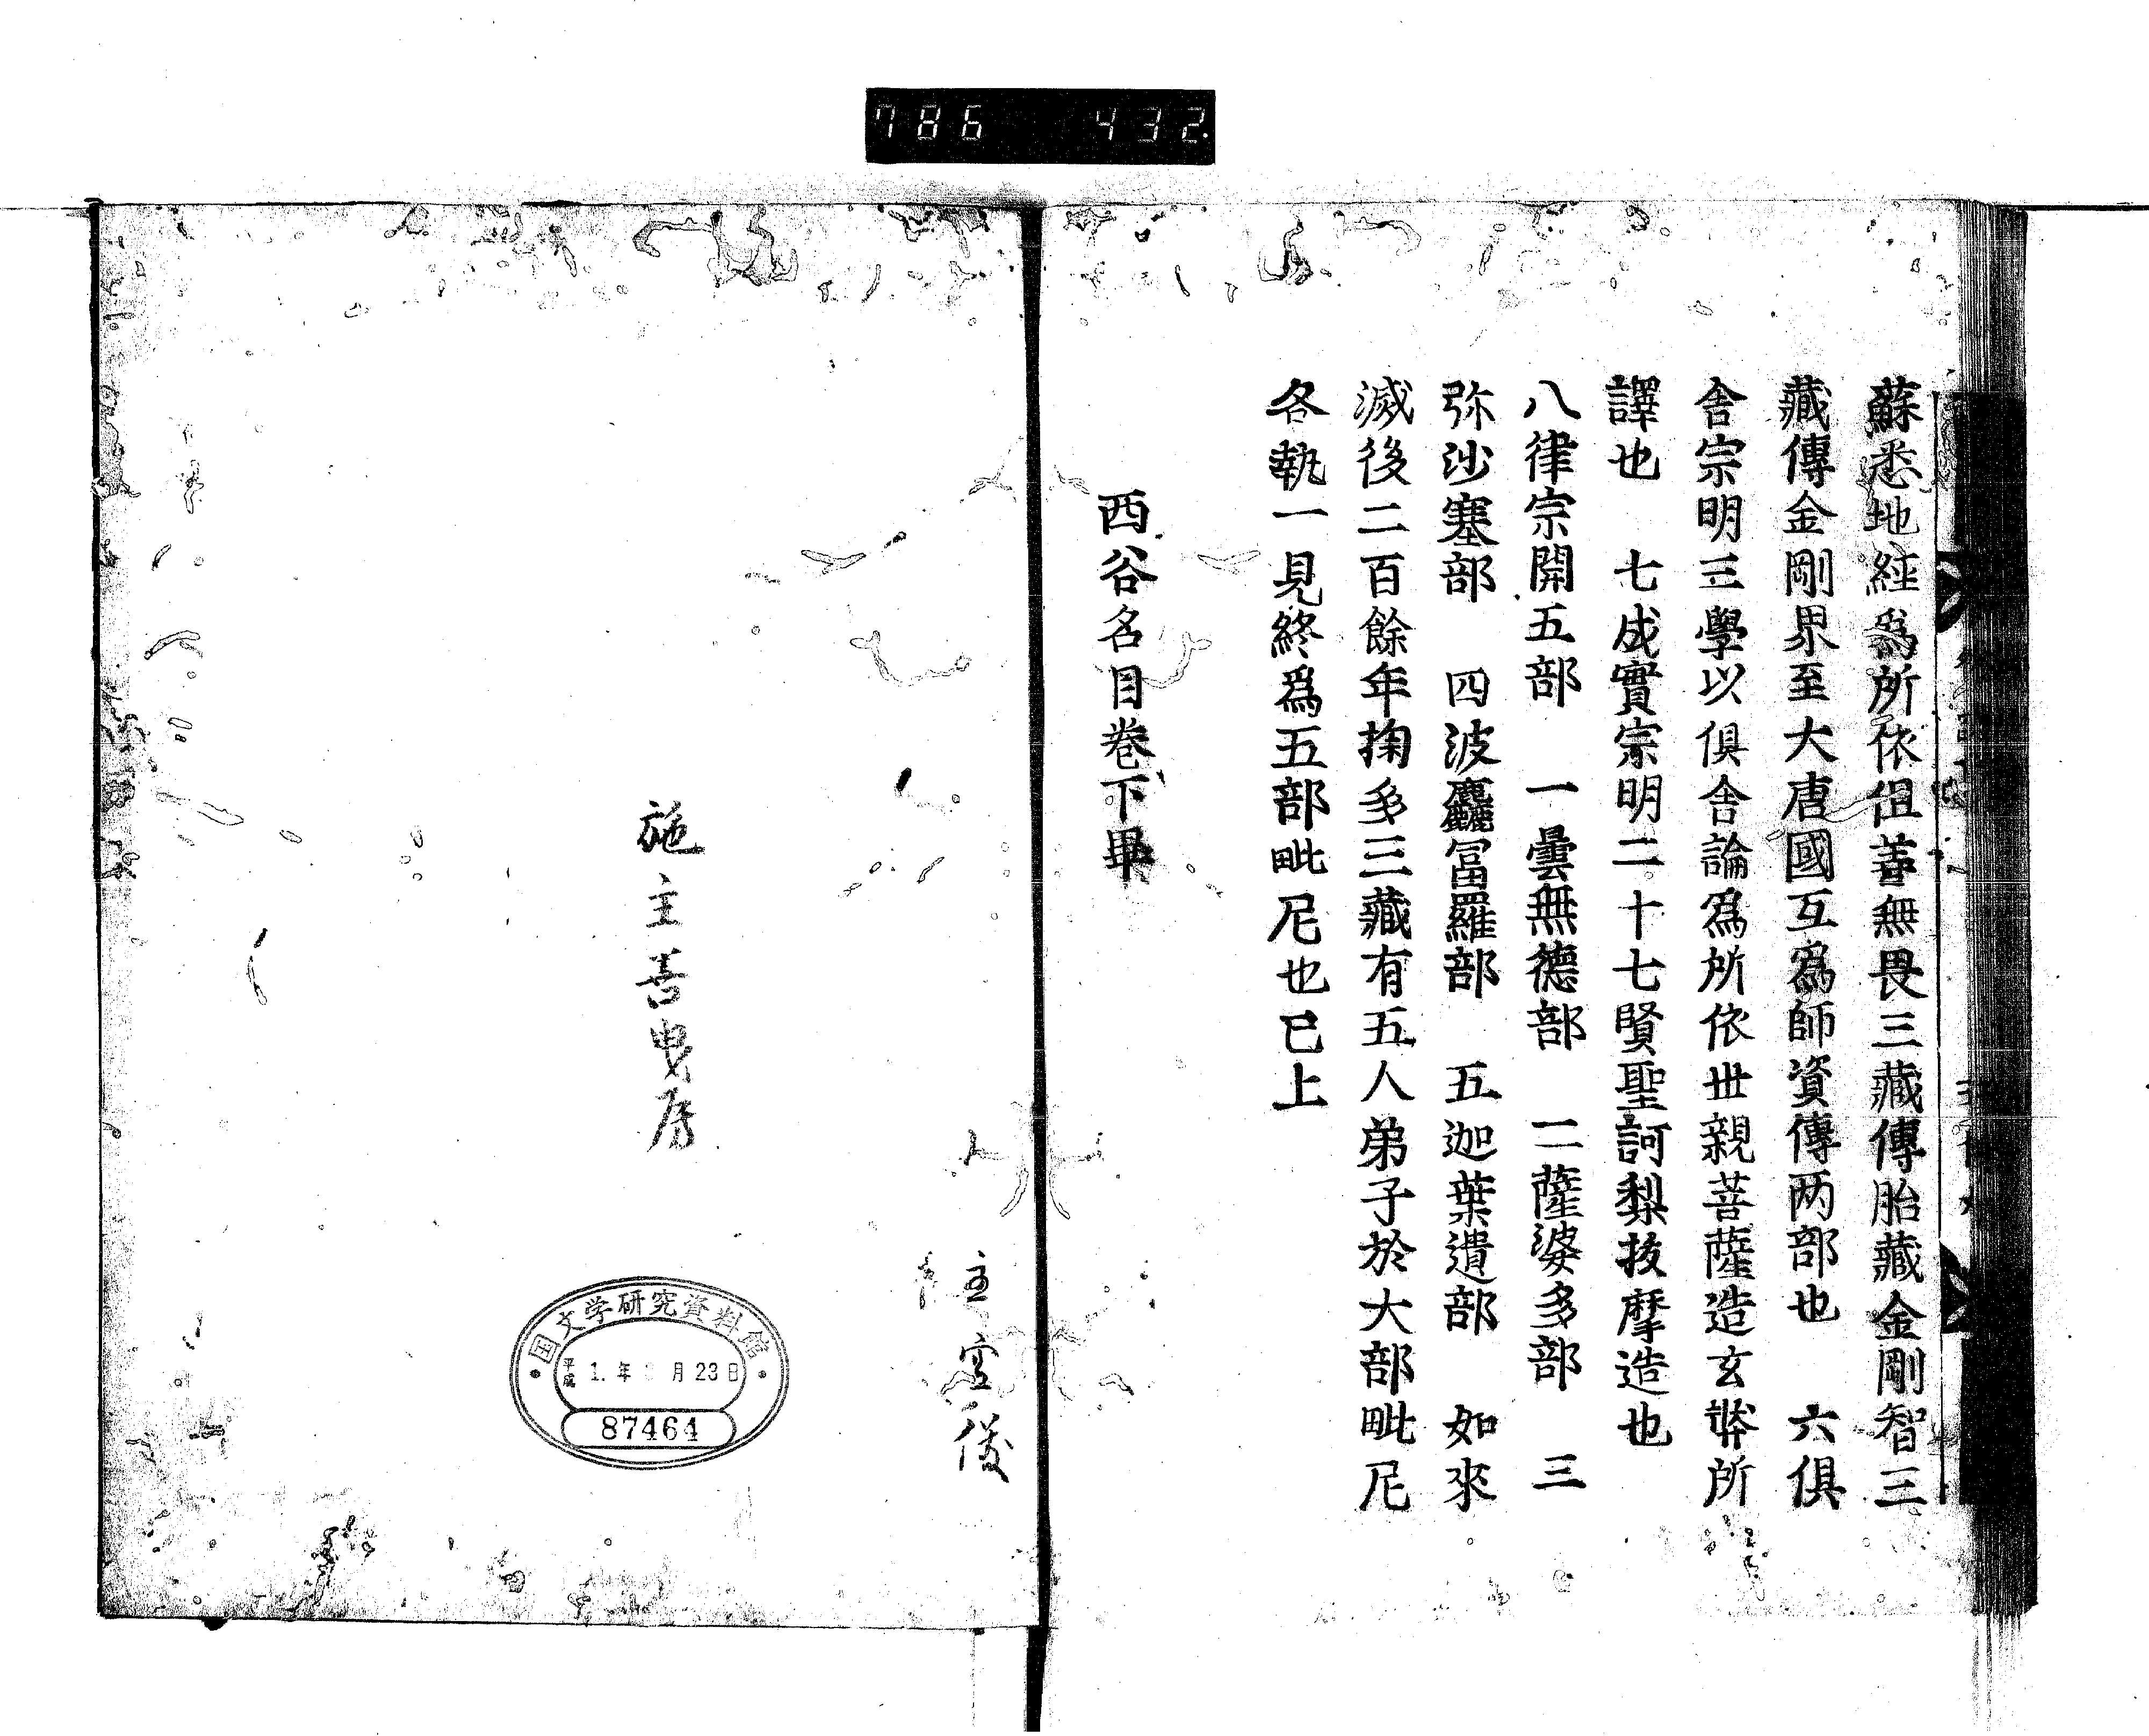 786 432
蘇悉地経為所依但善無畏三藏傳胎藏金剛智三
藏傳金剛界至大唐國互為師資傳两部也　六俱
舎宗明三學以俱舎論為所依丗親菩薩造玄弉所
譯也　七成實宗明二十七賢聖訶梨拔摩造也
八律宗開五部　一曇無德部　二薩婆多部　三
弥沙塞部　四波麤冨羅部　五迦葉遺部　如來
滅後二百餘年掬多三藏有五人弟子於大部毗尼
各執一見終爲五部毗尼也已上
西谷名目卷下畢
主
施主善
国文学研究資料館
平成 1. 年 月 23 日
87464